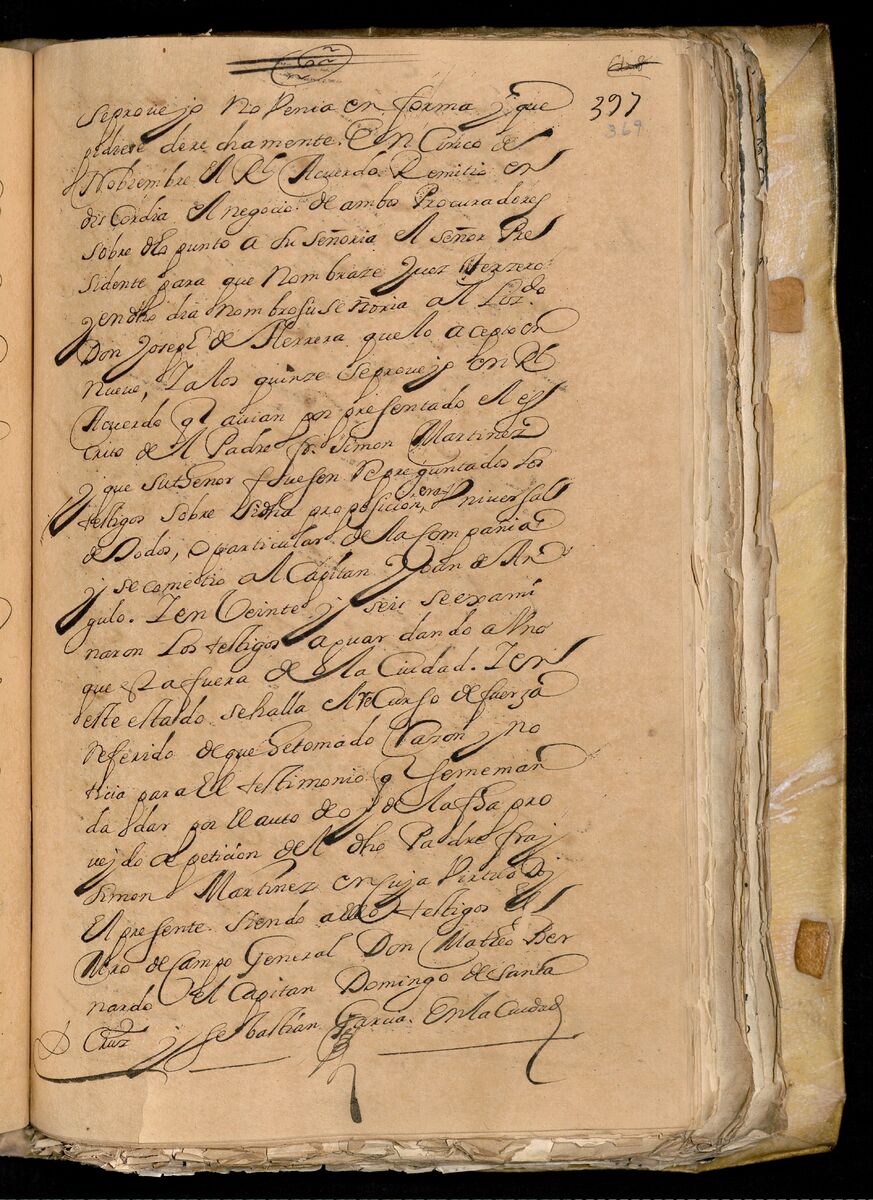 397
369
se proueyo No Venia en forma y que
pidiese derechamente. En Cinco de
Nobiembre El Rl Acuerdo Remitio en
discordia el negocio de ambos Procuradores
sobre dho punto a su señoria el señor Pre
sidente para que Nombraze Juez terzero
y en dho dia nombro su señoria al Lizdo
Don Joseph de Herrera que lo acepto en
nueue, Ia los quinze se proueyo en Rl
Acuerdo q auian por presentado el es
crito de el Padre fr. Simon Martinez
y que su thenor fuesen Repreguntados los
testigos sobre si dha proposicion, era Vniversal
de todos, o particular de la Compania
y se cometio al Capitan Juan de An
gulo. I en Veinte y seis se exami
naron los testigos aguardando a Vno
que esta fuera de la Ciudad. I en
este estado se halla el reCurso de fuerza
Referido de que he tomado razon y no
ticia para El testimonio q se me man
da dar por el auto de oy de la fha pro
ueydo a peticion del dho Padre fray
Simon Martinez en cuya Virtud doy
El presente siendo a ello testigos El
Mro de Campo General Don Matheo Ber
nardo el Capitan Domingo de Santa
Cruz y Sebastian Garcia. En la Ciudad